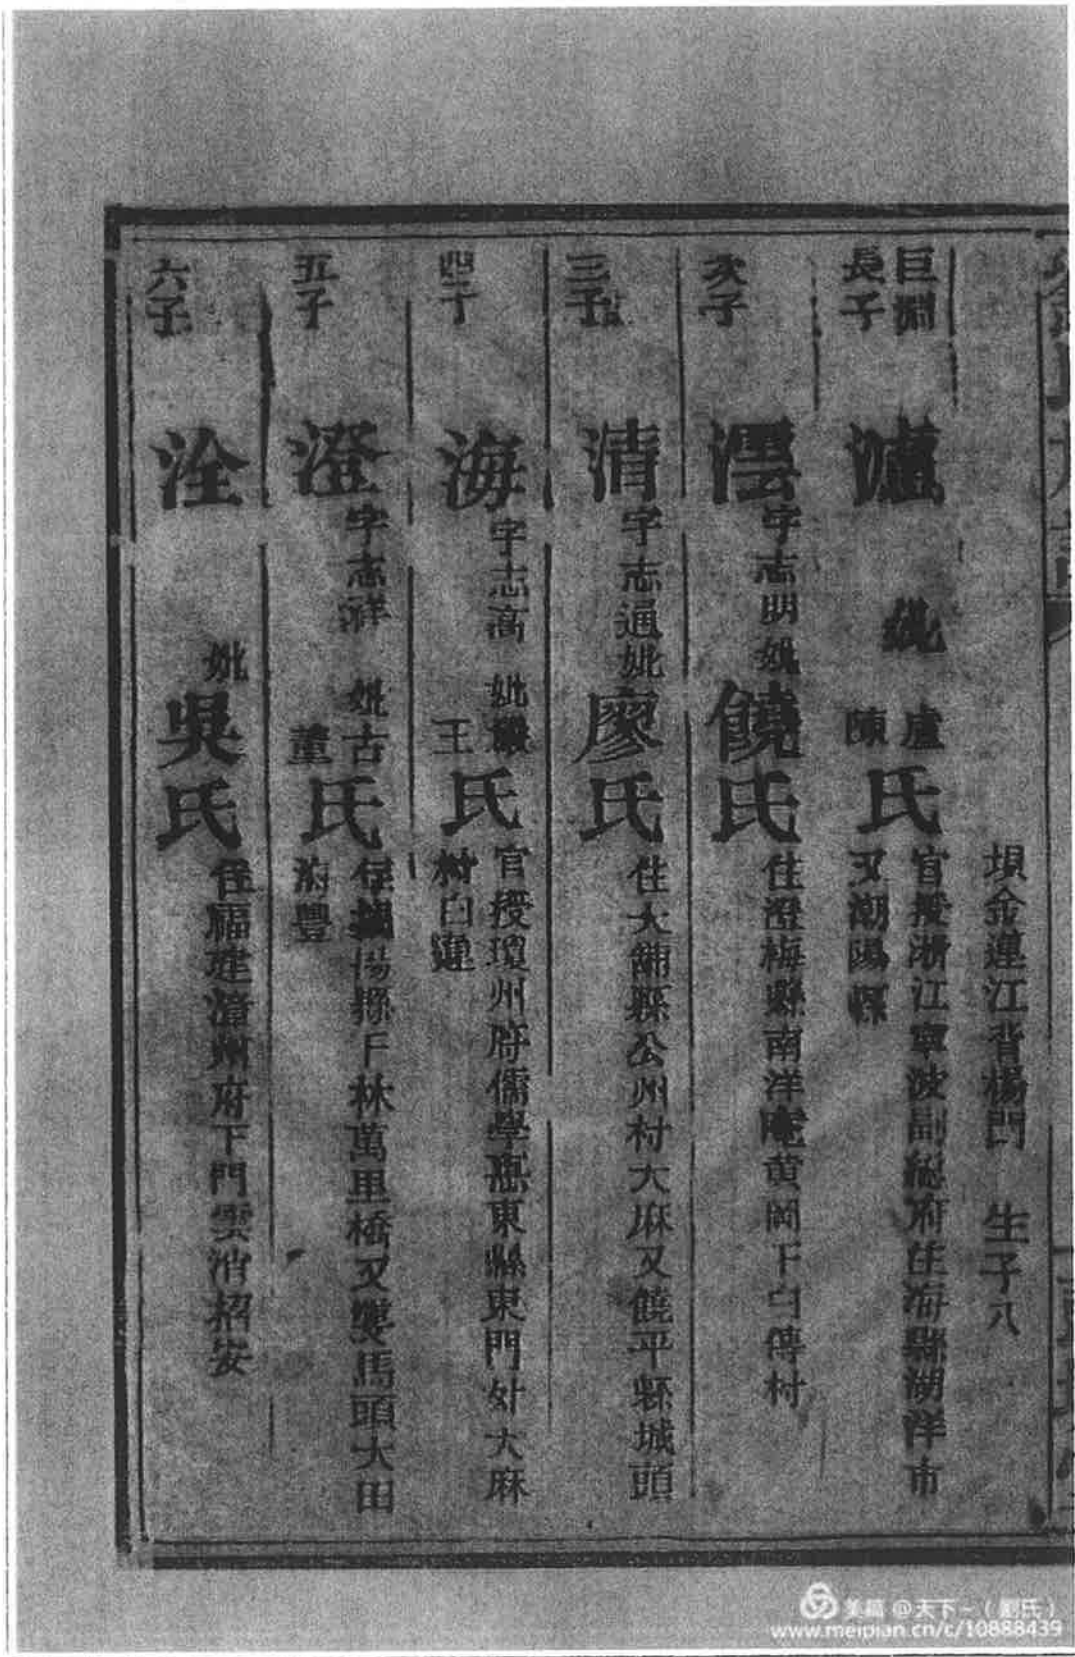 壩金連江背楊門 生子八
巨淵
長子
妣
盧
陳
氏
官授浙江寧波副總府住海縣湖洋市
又潮陽縣
次子
澐
字志明妣
饒氏
住澄梅縣南洋黄岡下白傳村
三子
清
字志通妣
廖氏
住大舖縣公州村大麻又饒平縣城頭
四子
海
字志高 妣
王
氏
官授瓊州府儒學東縣東門外大麻
村白蓮
五子
澄
字志祥 妣古
董
氏
住陽縣下林萬里橋又雙馬頭大田
豐
六子
洤
妣
吳氏
住福建漳州府下門雲消招安
美篇 @天下~（劉氏）
www.meipian.cn/c/10888439